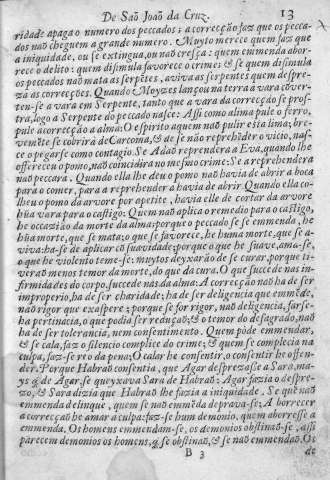 De Saõ Joaõ da Cruz. 13
ridade apaga o numero dos peccados; a correcçaõ faz que os pecca-
dos naõ cheguem a grande numero. Muyto merece quem faz que
a iniquidade, ou se extingua, ou naõ cresça: quem emmenda abor-
rece o delito: quem disimula favorece o crime: & se quem disimula
os peccados naõ mata as serpẽtes, aviva as serpentes quem despre-
za as correcções. Quando Moyzes lançou na terra a vara cõver-
ten-se a vara em Serpente, tanto que a vara da correcçaõ se pros-
tra, logo a Serpente do peccado nasce: Assi como alma pule o ferro,
pule a correcçaõ a alma: O espirito aquem naõ pulir esta lima, bre-
vemẽte se cobrirá de Carcoma, & de se não reprehẽder o vicio, nas-
ce o pegarse como contagio. Se Adaõ reprendera a Eva, quando lhe
offereceu o pomo, naõ coincidira no mesmo crime: Se a reprehendera
naõ peccara. Quando ella lhe deu o pomo naõ havia de abrir a boca
para o comer, para a reprehender a havia de abrir. Quando ella co-
lheu o pomo da arvore por apetite, havia elle de cortar da arvore
hũa vara para o castigo: Quem naõ aplica o remedio para o castigo,
he occaziaõ da morte da alma: porque o peccado se se emmenda, he
hũa morte, que se mata: que, se favorece, he huma morte, que se a-
viva: ha-se de aplicar cõ suavidade; porque o que he suave, ama-se,
o que he violento teme-se: muytos deyxaraõ de se curar, porque ti-
veraõ menos temor da morte, do que da cura. O que succede nas in-
firmidades do corpo, succede nas da alma: A correcçaõ naõ ha de ser
improperio, ha de ser charidade; ha de ser deligencia que emmẽde,
naõ rigor que exaspere; porque se for rigor, naõ deligencia, farse-
ha pertinacia, o que podia ser reducçaõ; & o temor do desagrado, naõ
ha de ser tolerancia, nem consentimento. Quem póde emmendar,
& se cala, faz o silencio complice do crime; & quem se complecia na
culpa, faz-se reo da pena; O calar he consentir, o consentir he offen-
der. Porque Habraõ consentia, que Agar desprezasse a Sara, ma-
ys q̃ de Agar, se queyxava Sara de Habraõ: Agar fazia o despre-
zo, & Sara dizia que Habraõ lhe fazia a iniquidade. Se quẽ naõ
emmenda delinque, quem se naõ emmẽda deprava-se; A borrecer
a correcçaõ he amar a culpa: faz-se hum demonio, quem aborresse a
emmenda. Os homens emmendam-se, os demonios obstinaõ-se, assi
parecem demonios os homens, q̃ se obstinaõ, & se naõ emmendaõ. Os
B 3 de